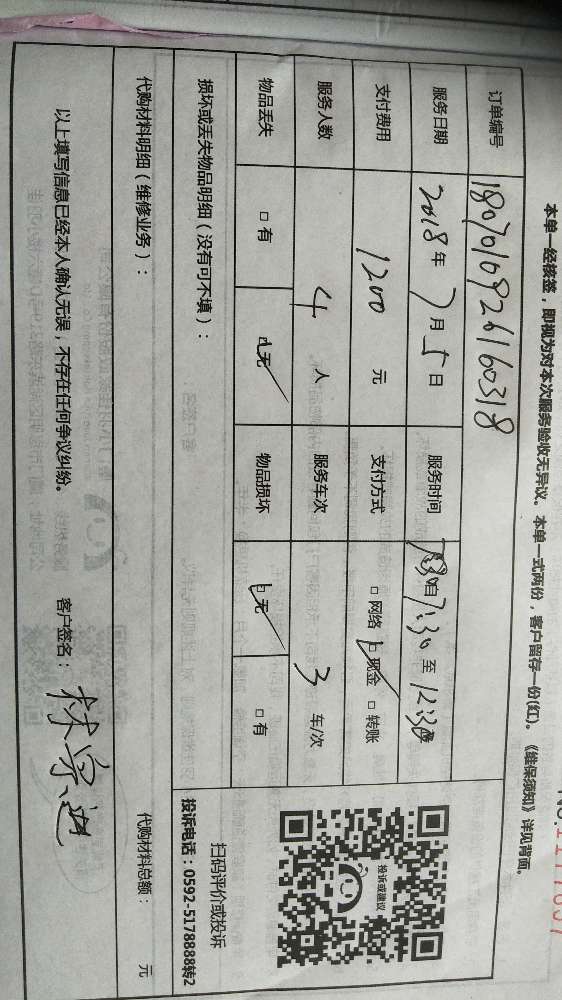 本单一经核签，即视为对本次服务验收无异议。本单一式两份，客户留存一份(红)。《维保须知》详见背面。
订单编号 1807010926160318
服务日期 2018年7月5日 服务时间 自7:30至12:30
支付费用 1200元 支付方式 □网络 ☑现金 □转账
服务人数 4人 服务车次 3车/次
物品丢失 □有 ☑无 物品损坏 ☑无 □有
损坏或丢失物品明细（没有可不填）：
代购材料明细（维修业务）：
代购材料总额： 元
以上填写信息已经本人确认无误，不存在任何争议纠纷。 客户签名：
投诉或建议
扫码评价或投诉
投诉电话：0592-5178888转2